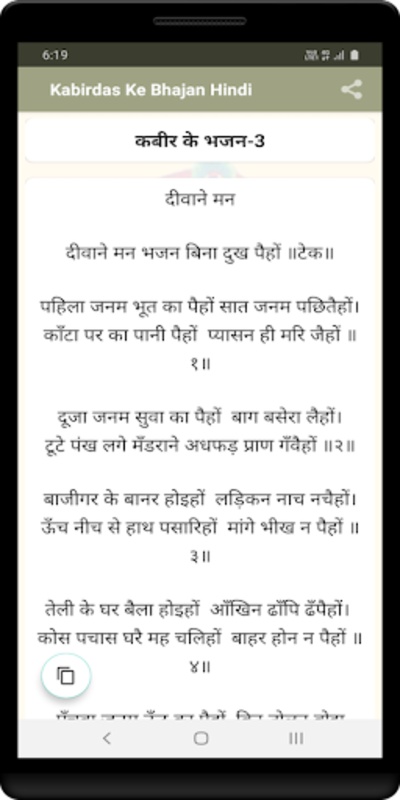 6:19
Kabirdas Ke Bhajan Hindi
कबीर के भजन-3
दीवाने मन
दीवाने मन भजन बिना दुख पैहों ॥टेक॥
पहिला जनम भूत का पैहों सात जनम पछितैहों।
काँटा पर का पानी पैहों प्यासन ही मरि जैहों ॥
१॥
दूजा जनम सुवा का पैहों बाग बसेरा लैहों।
टूटे पंख लगे मँडराने अधफड़ प्राण गँवैहों ॥२॥
बाजीगर के बानर होइहों लड़िकन नाच नचैहों।
ऊँच नीच से हाथ पसारिहों मांगे भीख न पैहों ॥
३॥
तेली के घर बैला होइहों आँखिन ढाँपि ढँपैहों।
कोस पचास घरै मह चलिहों बाहर होन न पैहों ॥
४॥